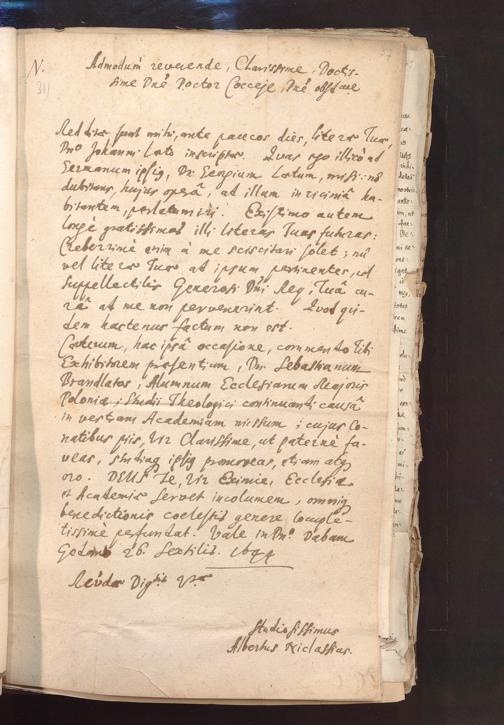 N.
311
Admodum reverende, Clarissime, Doctis-
sime Dne Doctor Cocceje, Dne
Redditæ sunt mihi, ante paucos dies, literæ Tuæ,
Dno Johanni Læto inscriptæ. Quas ego illico ad
Germanum ipsig, Dn. Lætum, misi: nō
dubitans, hujus operâ, ad illam in viciniâ ha-
bitantem, perlatum iri. Existimo autem
longè gratissimas illi literas Tuas futuras:
Creberrimè enim à me sciscitari solet; nū
vel literæ Tuæ, ad ipsum pertinentes, vel
suppellectilis Generosi Dni Rey, Tuâ cu-
râ ad me non pervenerint. Quod qui-
dem hactenus factum non est.
Cæterum, hac ipsâ occasione, commendo Tibi
Exhibitorem præsentium, Dn. Sebastianum
Alumnum Ecclesiarum Majoris
Poloniæ; Studii Theologici continuandi causâ
in vestram Academiam missum; cujus Co-
natibus piis, Vir Clarissime, ut paternè fa-
veas, studiaq ipsig promoveas, etiam atq
oro. DEUS Te, Vir Eximie, Ecclesiæ
et Academiæ servet incolumem, omniq
benedictionis coelestis genere locuple-
tissimè perfundat. Vale in Dno. Dabam
26. Sextilis. 1644
Revdæ Digtis Væ
Studiosissimus
Albertus Niclassius.